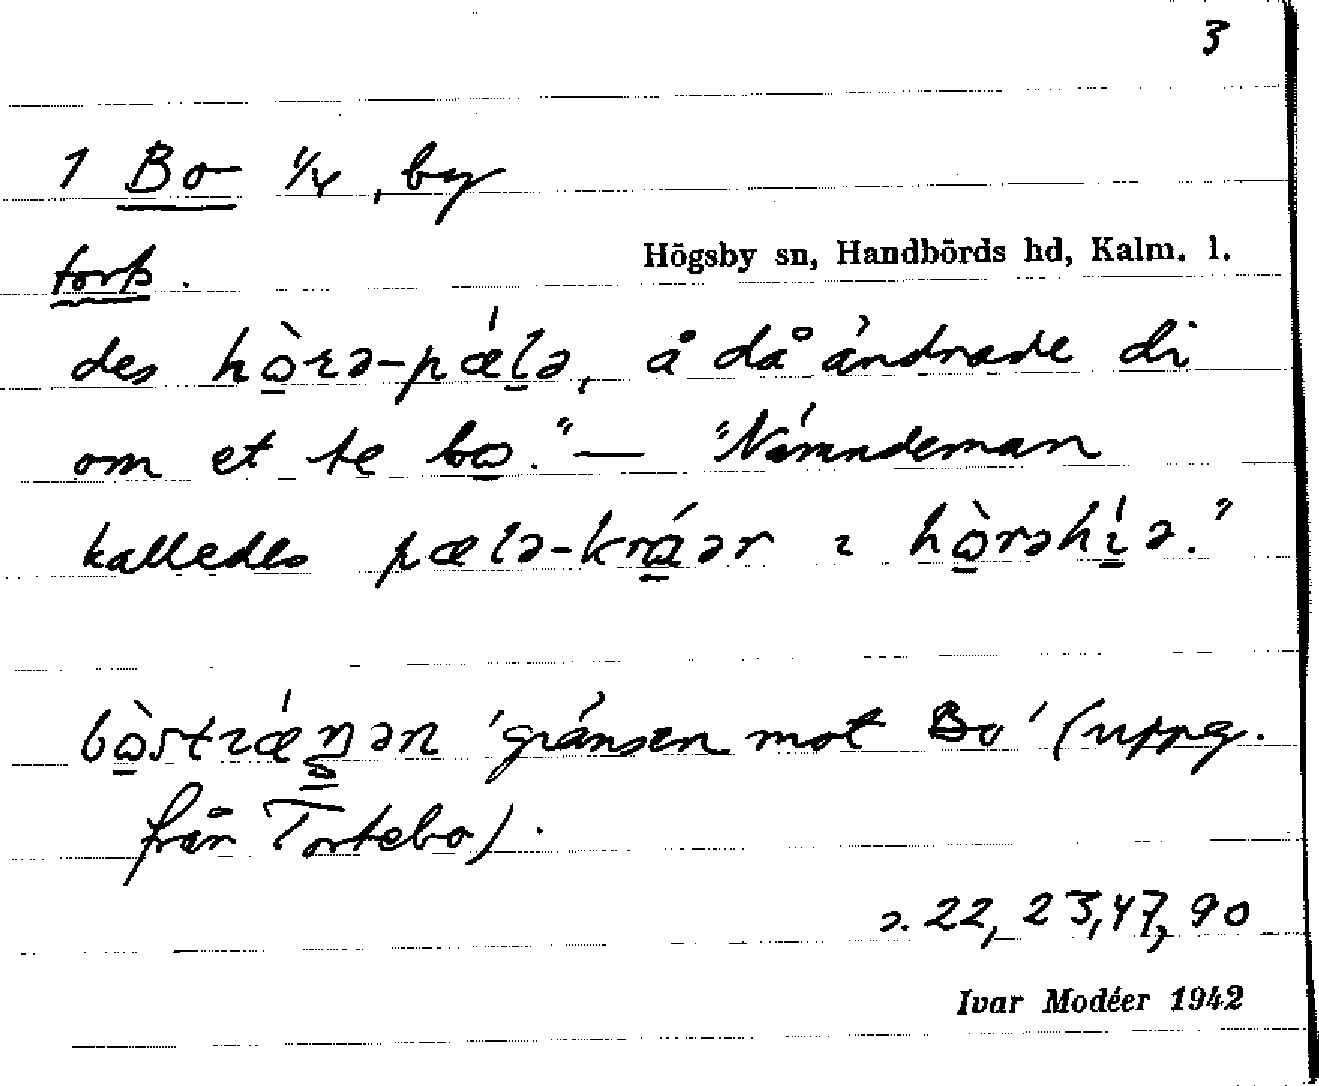 3
1 Bo 1/4, by
Högsby sn, Handbörds hd, Kalm. l.
forts.
des hò̱rə-pǽl̠ə, å då ändrade di
om et te bo̱." — "Nämndeman
kalledes pælə-krá̱ər ɩ hò̱rəhí̱ə."
bò̱strǽŋən 'gränsen mot Bo' (uppg.
från Tortebo).
s. 22, 23, 47, 90
Ivar Modéer 1942